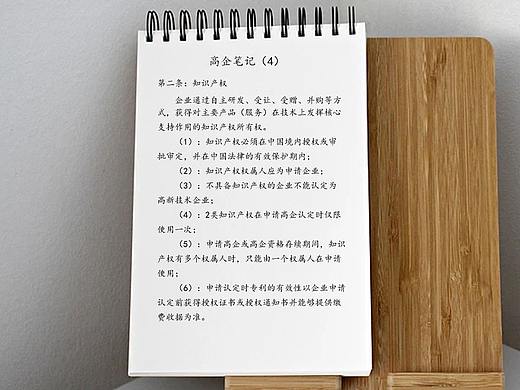 高企笔记（4）
第二条：知识产权
企业通过自主研发、受让、受赠、并购等方
式，获得对主要产品（服务）在技术上发挥核心
支持作用的知识产权所有权。
（1）：知识产权必须在中国境内授权或审
批审定，并在中国法律的有效保护期内；
（2）：知识产权权属人应为申请企业；
（3）：不具备知识产权的企业不能认定为
高新技术企业；
（4）：2类知识产权在申请高企认定时仅限
使用一次；
（5）：申请高企或高企资格存续期间，知识
产权有多个权属人时，只能由一个权属人在申请
使用；
（6）：申请认定时专利的有效性以企业申请
认定前获得授权证书或授权通知书并能够提供缴
费收据为准。